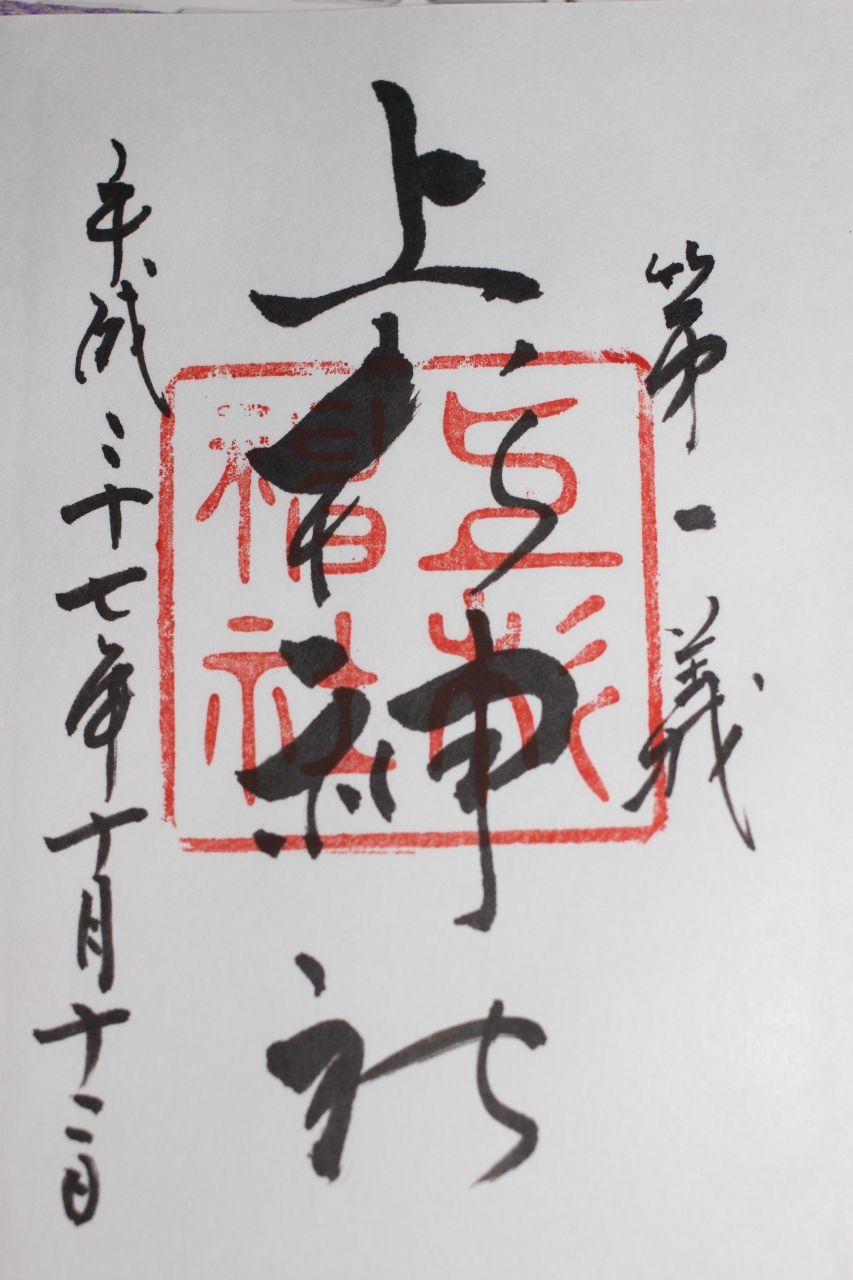 第一義
上杉神社
平成二十七年十月十二日
上杉
神社